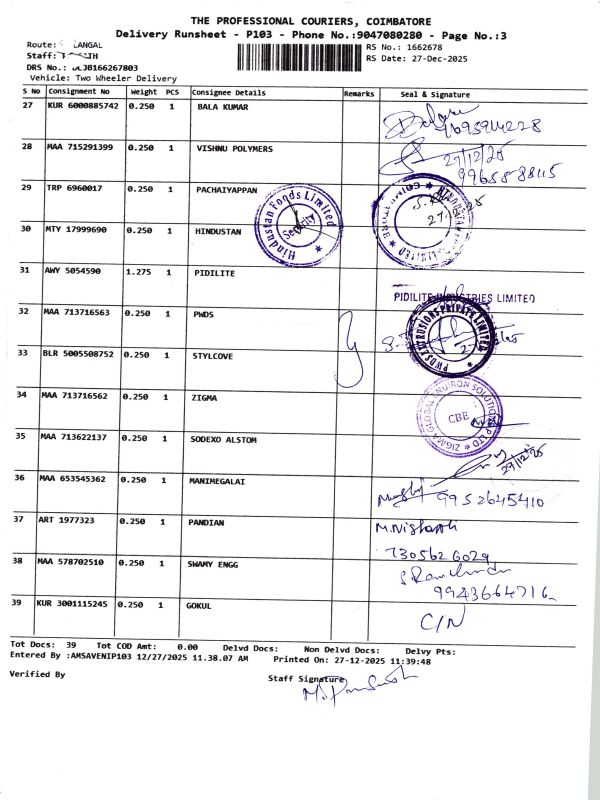 THE PROFESSIONAL COURIERS, COIMBATORE
Delivery Runsheet - P103 - Phone No.:9047080280 - Page No.:3
Route: LANGAL
RS No.: 1662678
Staff: TH
RS Date: 27-Dec-2025
DRS No.: JB166267803
Vehicle: Two Wheeler Delivery
S No Consignment No Weight PCS Consignee Details Remarks Seal & Signature
27 KUR 6000885742 0.250 1 BALA KUMAR
28 MAA 715291399 0.250 1 VISHNU POLYMERS 27/12/25
29 TRP 6960017 0.250 1 PACHAIYAPPAN
Hindustan Foods Limited Security
30 MTY 17999690 0.250 1 HINDUSTAN
31 AWY 5054590 1.275 1 PIDILITE
PIDILITE INDUSTRIES LIMITED
32 MAA 713716563 0.250 1 PWDS
PRIVATE LIMITED
33 BLR 5005508752 0.250 1 STYLCOVE
34 MAA 713716562 0.250 1 ZIGMA
ZIGMA GLOBAL ENVIRON SOLUTIONS P LTD CBE
35 MAA 713622137 0.250 1 SODEXO ALSTOM
27/12/25
36 MAA 653545362 0.250 1 MANIMEGALAI 9952645410
37 ART 1977323 0.250 1 PANDIAN
7305626029
38 MAA 578702510 0.250 1 SWAMY ENGG
9943664716
39 KUR 3001115245 0.250 1 GOKUL C/N
Tot Docs: 39 Tot COD Amt: 0.00 Delvd Docs: Non Delvd Docs: Delvy Pts:
Entered By :AMSAVENIP103 12/27/2025 11.38.07 AM Printed On: 27-12-2025 11:39:48
Verified By Staff Signature